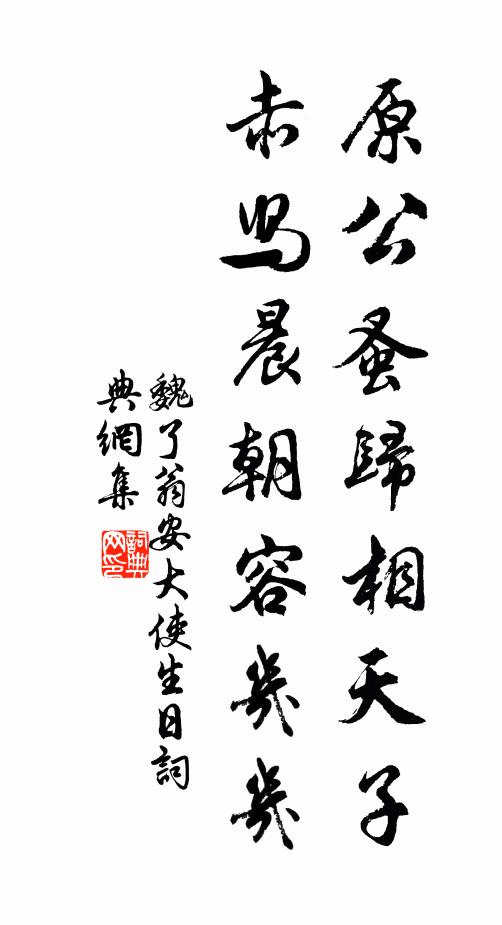 原公蚤歸相天子
赤舄晨朝容幾幾
魏了翁安大使生日詞
典網集
詞典
网印